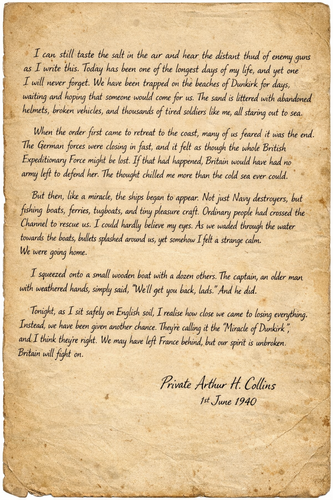 I can still taste the salt in the air and hear the distant thud of enemy guns
as I write this. Today has been one of the longest days of my life, and yet one
I will never forget. We have been trapped on the beaches of Dunkirk for days,
waiting and hoping that someone would come for us. The sand is littered with abandoned
helmets, broken vehicles, and thousands of tired soldiers like me, all staring out to sea.
When the order first came to retreat to the coast, many of us feared it was the end.
The German forces were closing in fast, and it felt as though the whole British
Expeditionary Force might be lost. If that had happened, Britain would have had no
army left to defend her. The thought chilled me more than the cold sea ever could.
But then, like a miracle, the ships began to appear. Not just Navy destroyers, but
fishing boats, ferries, tugboats, and tiny pleasure craft. Ordinary people had crossed the
Channel to rescue us. I could hardly believe my eyes. As we waded through the water
towards the boats, bullets splashed around us, yet somehow I felt a strange calm.
We were going home.
I squeezed onto a small wooden boat with a dozen others. The captain, an older man
with weathered hands, simply said, "We'll get you back, lads." And he did.
Tonight, as I sit safely on English soil, I realise how close we came to losing everything.
Instead, we have been given another chance. They're calling it the "Miracle of Dunkirk",
and I think they're right. We may have left France behind, but our spirit is unbroken.
Britain will fight on.
Private Arthur H. Collins
1st June 1940